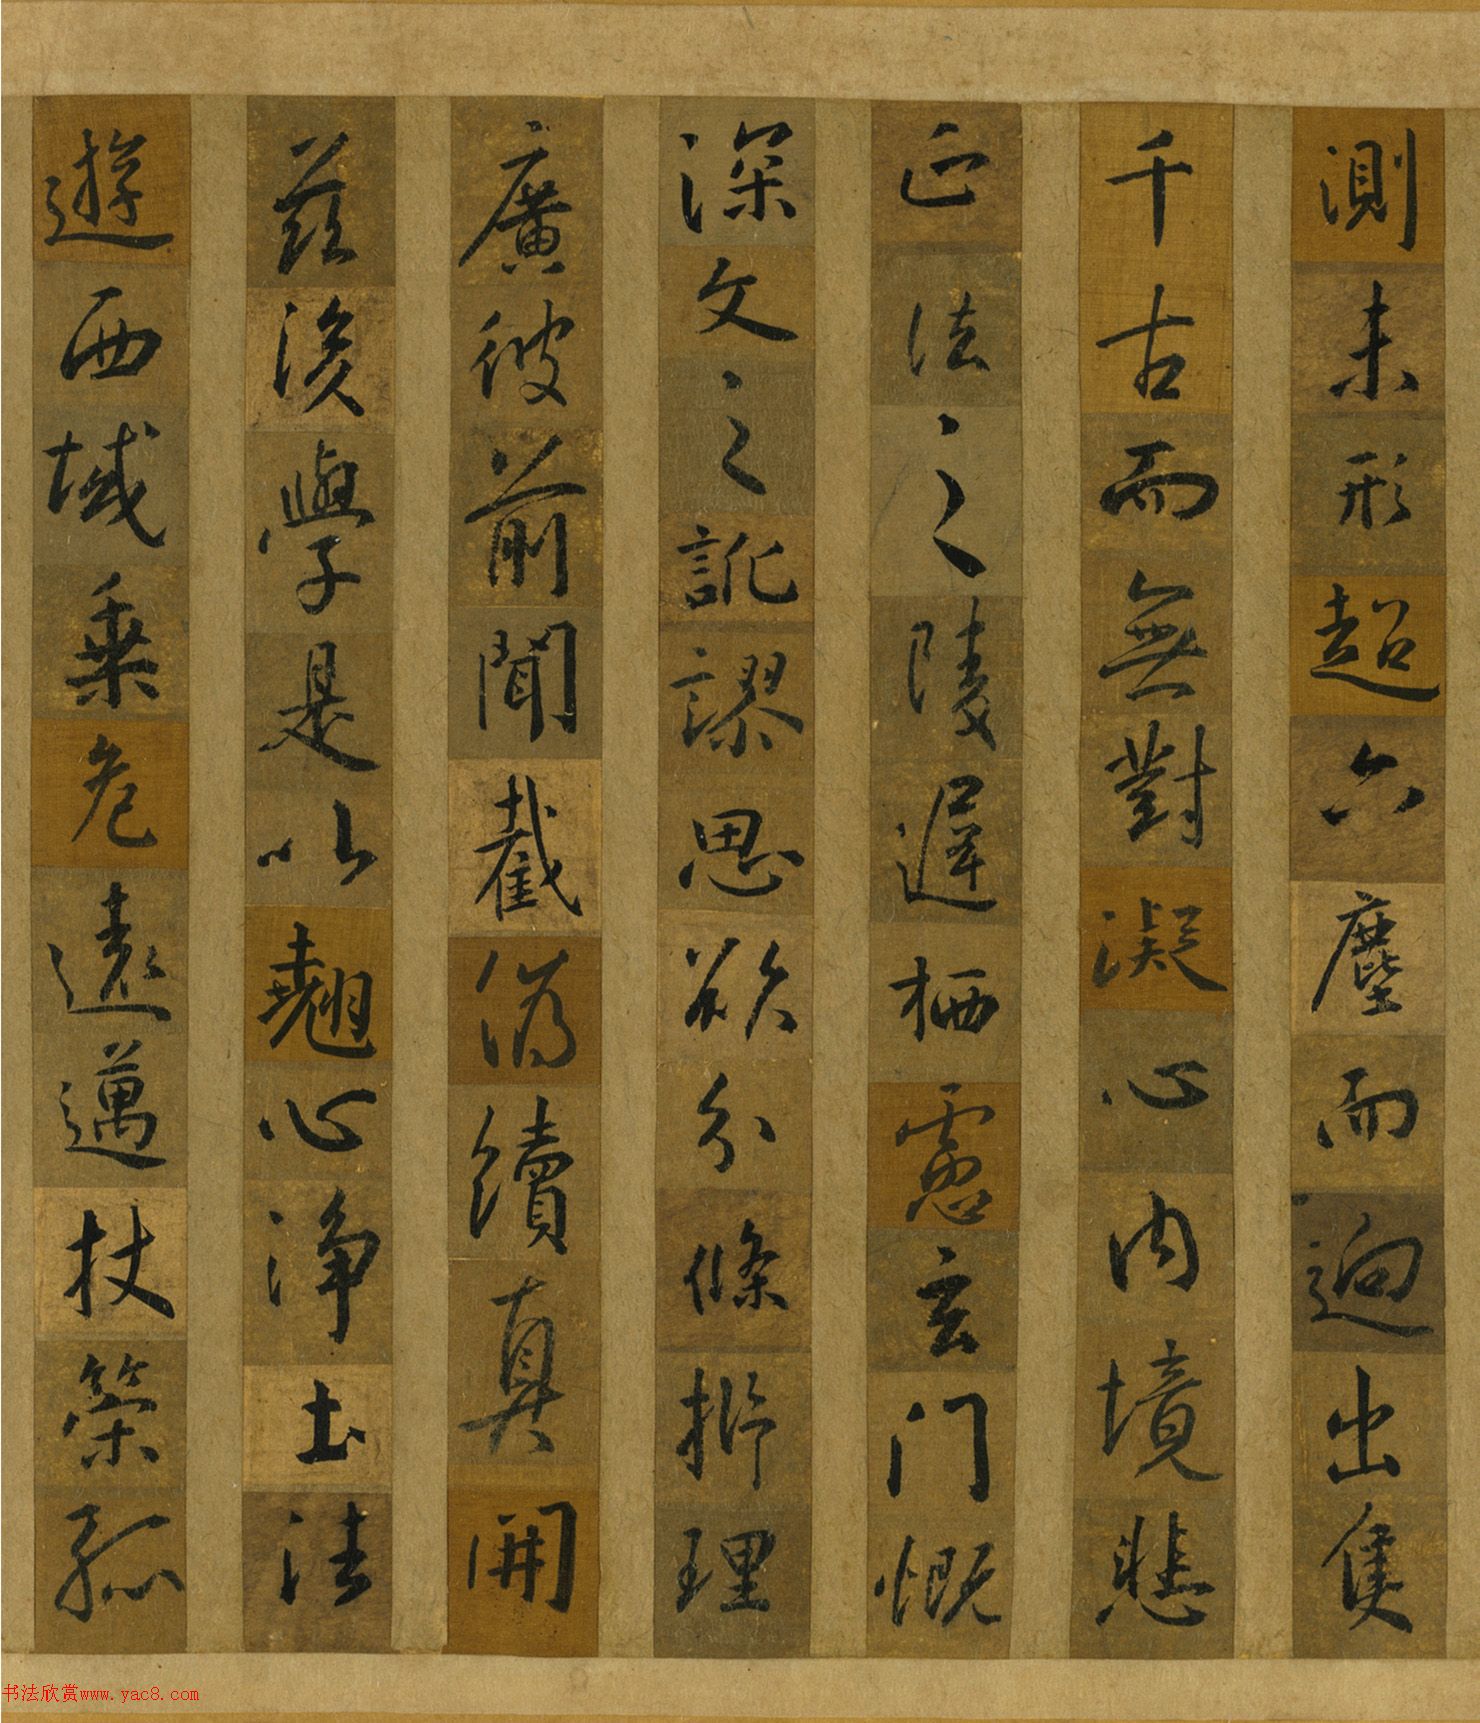 測未形超六塵而迥出隻
千古而無對凝心内境悲
正法之陵遲栖慮玄門慨
深文之訛謬思欲分條析理
廣彼前聞截偽續真開
茲後學是以翹心淨土法
遊西域乗危遠邁杖策孤
书法欣赏www.yac8.com